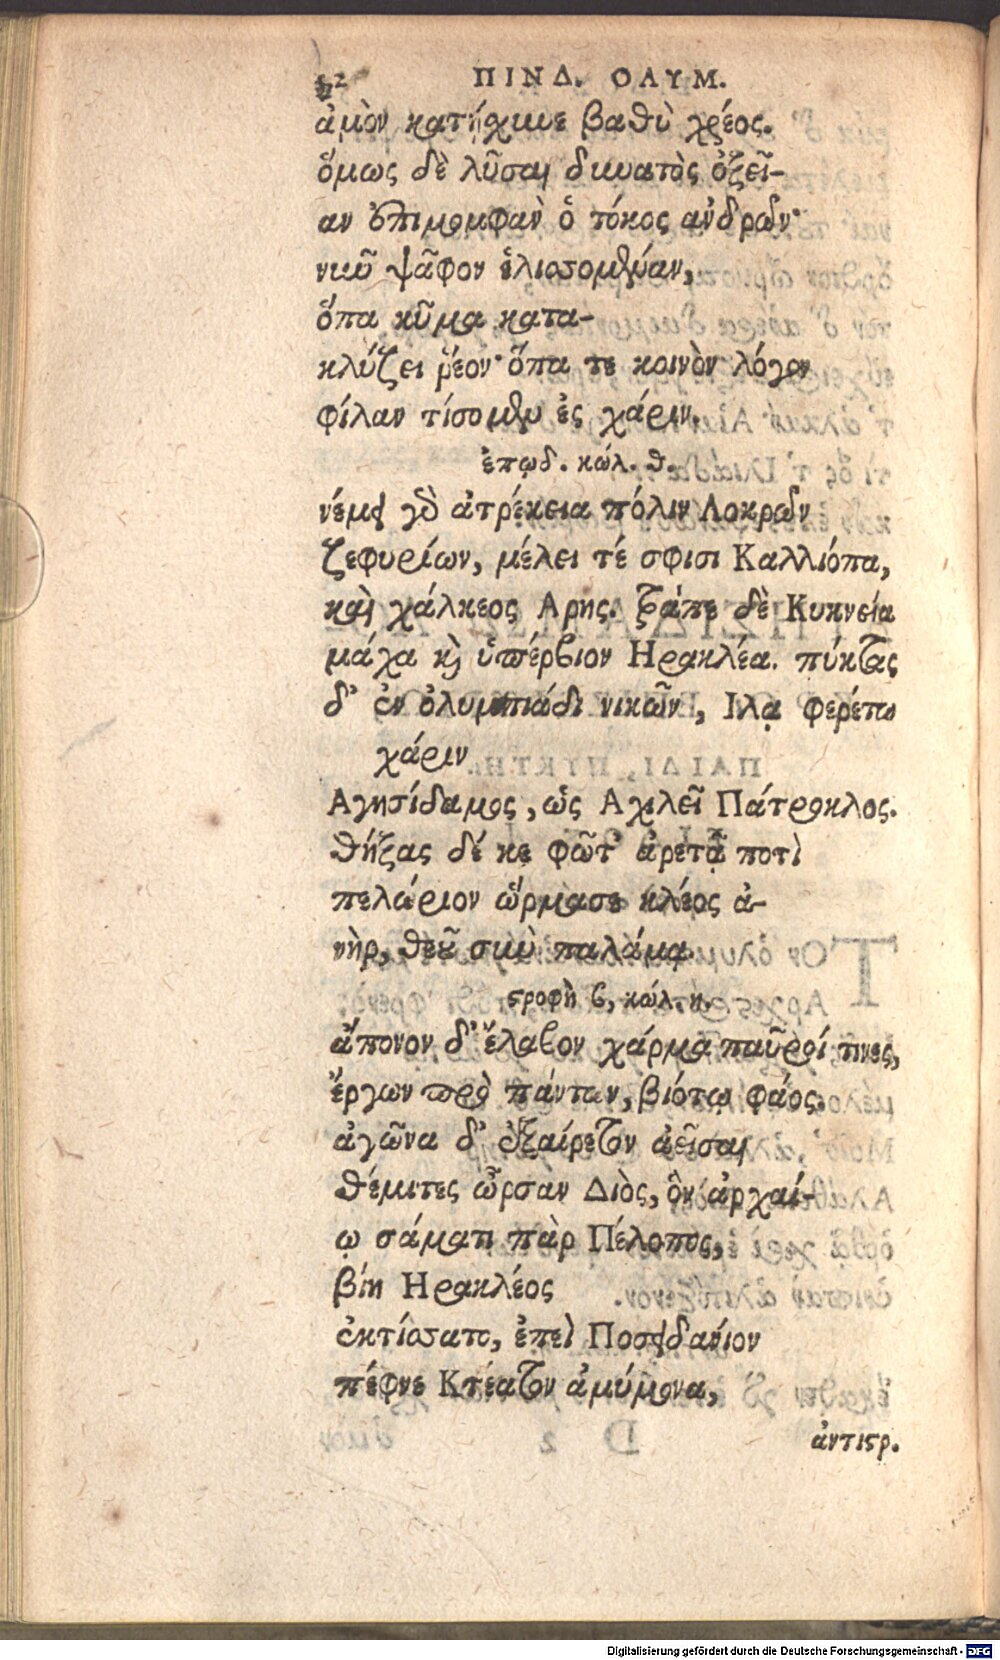 52 ΠΙΝΔ. ΟΛΥΜ.
ἀμὸν κατῄχυνε βαθὺ χρέος.
ὅμως δὲ λῦσαι δυνατὸς ὀξεῖ-
αν ἐπιμομφὰν ὁ τόκος ἀνδρῶν·
νυῦ ψᾶφον ἑλισσομέναν,
ὅπα κῦμα κατα-
κλύζει ῥέον· ὅπα τε κοινὸν λόγον
φίλαν τίσομεν ἐς χάριν.
ἐπῳδ. κώλ. θ.
νέμει γὰρ ἀτρέκεια πόλιν Λοκρῶν
ζεφυρίων, μέλει τέ σφισι Καλλιόπα,
καὶ χάλκεος Αρης. τράπε δὲ Κυκνεία
μάχα καὶ ὑπέρβιον Ηρακλέα. πύκτας
δ' ἐν ὀλυμπιάδι νικῶν, Ιλᾳ φερέτω
χάριν
Αγησίδαμος, ὡς Αχιλεῖ Πάτροκλος.
θήξας δέ κε φῶτ' ἀρετᾷ ποτὶ
πελώριον ὥρμασε κλέος ἀ-
νὴρ, θεοῦ σὺν παλάμᾳ.
στροφὴ β, κώλ. η.
ἄπονον δ' ἔλαβον χάρμα παῦροί τινες,
ἔργων πρὸ πάντων, βιότῳ φάος.
ἀγῶνα δ' ἐξαίρετον ἀεῖσαι
θέμιτες ὦρσαν Διὸς, ὃν ἀρχαί-
ῳ σάματι πὰρ Πέλοπος,
βίη Ηρακλέος
ἐκτίσσατο, ἐπεὶ Ποσειδανίον
πέφνε Κτέατον ἀμύμονα,
ἀντιστρ.
Digitalisierung gefördert durch die Deutsche Forschungsgemeinschaft - DFG